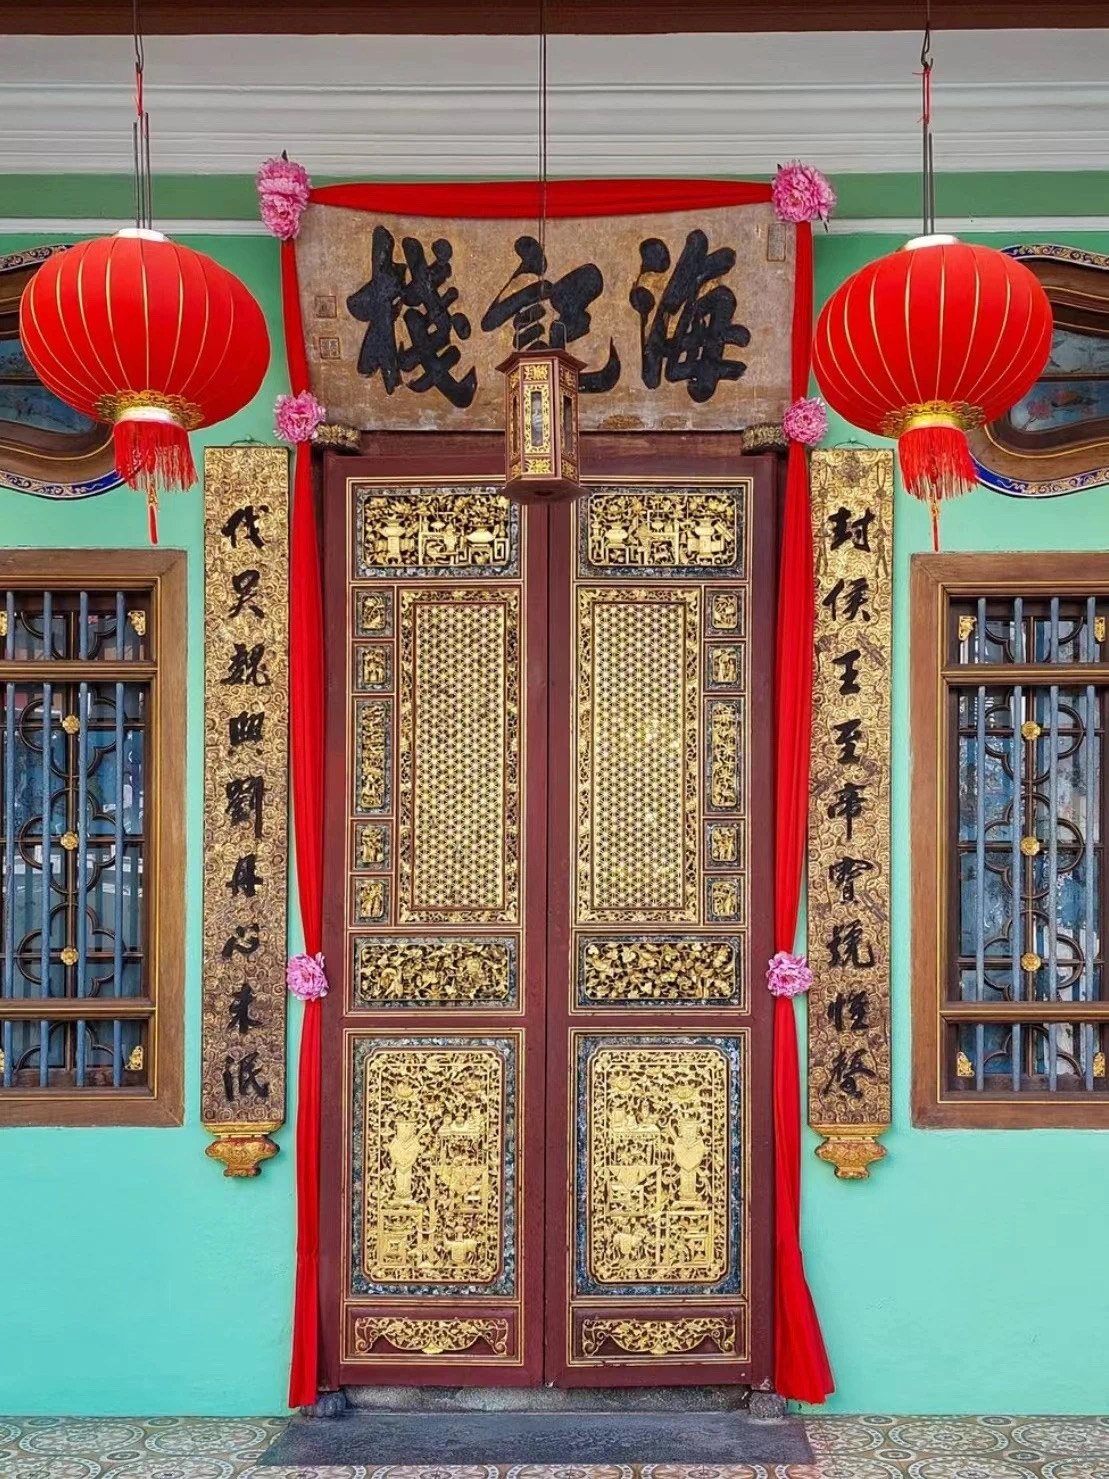 海記棧
封侯王至帝寶號惟馨
伐吳魏興劉丹心未泯